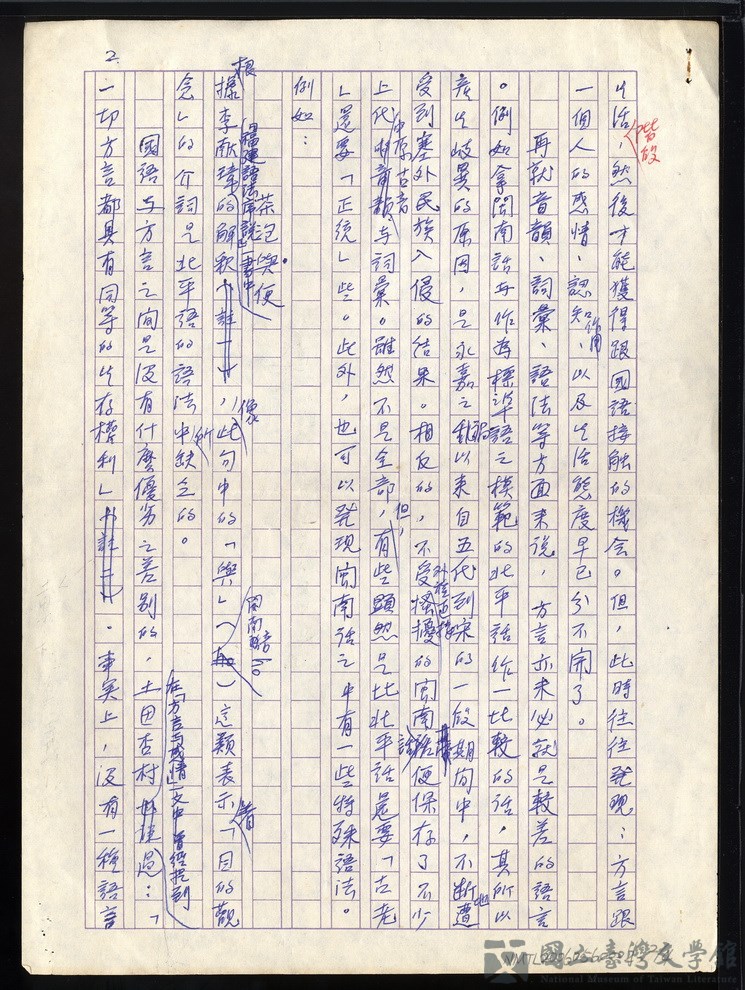 2.
生活，然後才能獲得跟國語接觸的機會。但，此時往往發現：方言跟
階段
一個人的感情、認知作用、以及生活態度早已分不開了。
再就音韻、詞彙、語法等方面來說，方言亦未必就是較差的語言
。例如拿閩南話與作為標準語之模範的北平話作一比較的話，其所以
產生歧異的原因，是永嘉之亂以來自五代到宋的一段期間中，不斷地遭
受到塞外民族入侵的結果。相反的，不受外族近接騷擾的閩南話便保存了不少
上代中原古音與詞彙。雖然不是全部，但，有些顯然是比北平話還要「古老
」還要「正統」些。此外，也可以發現閩南話之中有一些特殊語法。
例如：
茶泡與便。
根據李献璋的解釋（註一），像此句中的「與」（閩南語ho）這類表示著「目的觀
福建語法序說」一書中
念」的介詞是北平語的語法中所缺乏的。
國語與方言之間是沒有什麼優劣之差別的，土田杏村
在「方言與感情」一文中曾經提到過：「
一切方言都具有同等的生存權利」（註二）。事實上，沒有一種語言
國立臺灣文學館
National Museum of Taiwan Literature